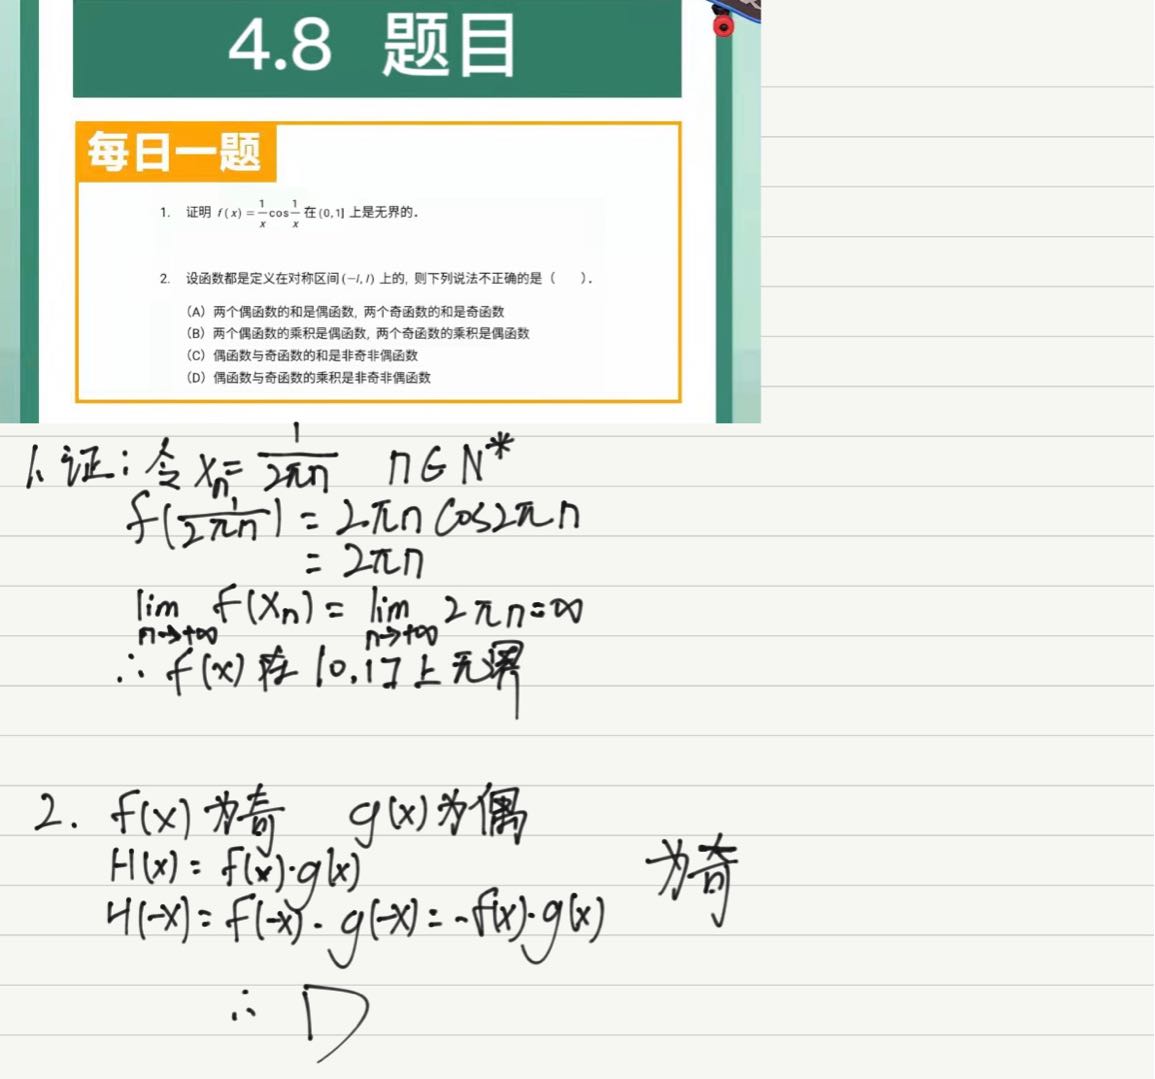 4.8 题目
每日一题
1. 证明 f(x)=1/x cos 1/x 在 (0,1] 上是无界的.
2. 设函数都是定义在对称区间 (-l,l) 上的, 则下列说法不正确的是 ( ).
(A) 两个偶函数的和是偶函数, 两个奇函数的和是奇函数
(B) 两个偶函数的乘积是偶函数, 两个奇函数的乘积是偶函数
(C) 偶函数与奇函数的和是非奇非偶函数
(D) 偶函数与奇函数的乘积是非奇非偶函数
1、证: 令 xₙ= 1/2πn n∈N*
f(1/2πn) = 2πn cos2πn
= 2πn
lim n→+∞ f(xₙ) = lim n→+∞ 2πn=∞
∴ f(x) 在 (0,1] 上无界
2. f(x) 为奇 g(x) 为偶
H(x) = f(x)·g(x) 为奇
H(-x) = f(-x)·g(-x) = -f(x)·g(x)
∴ D